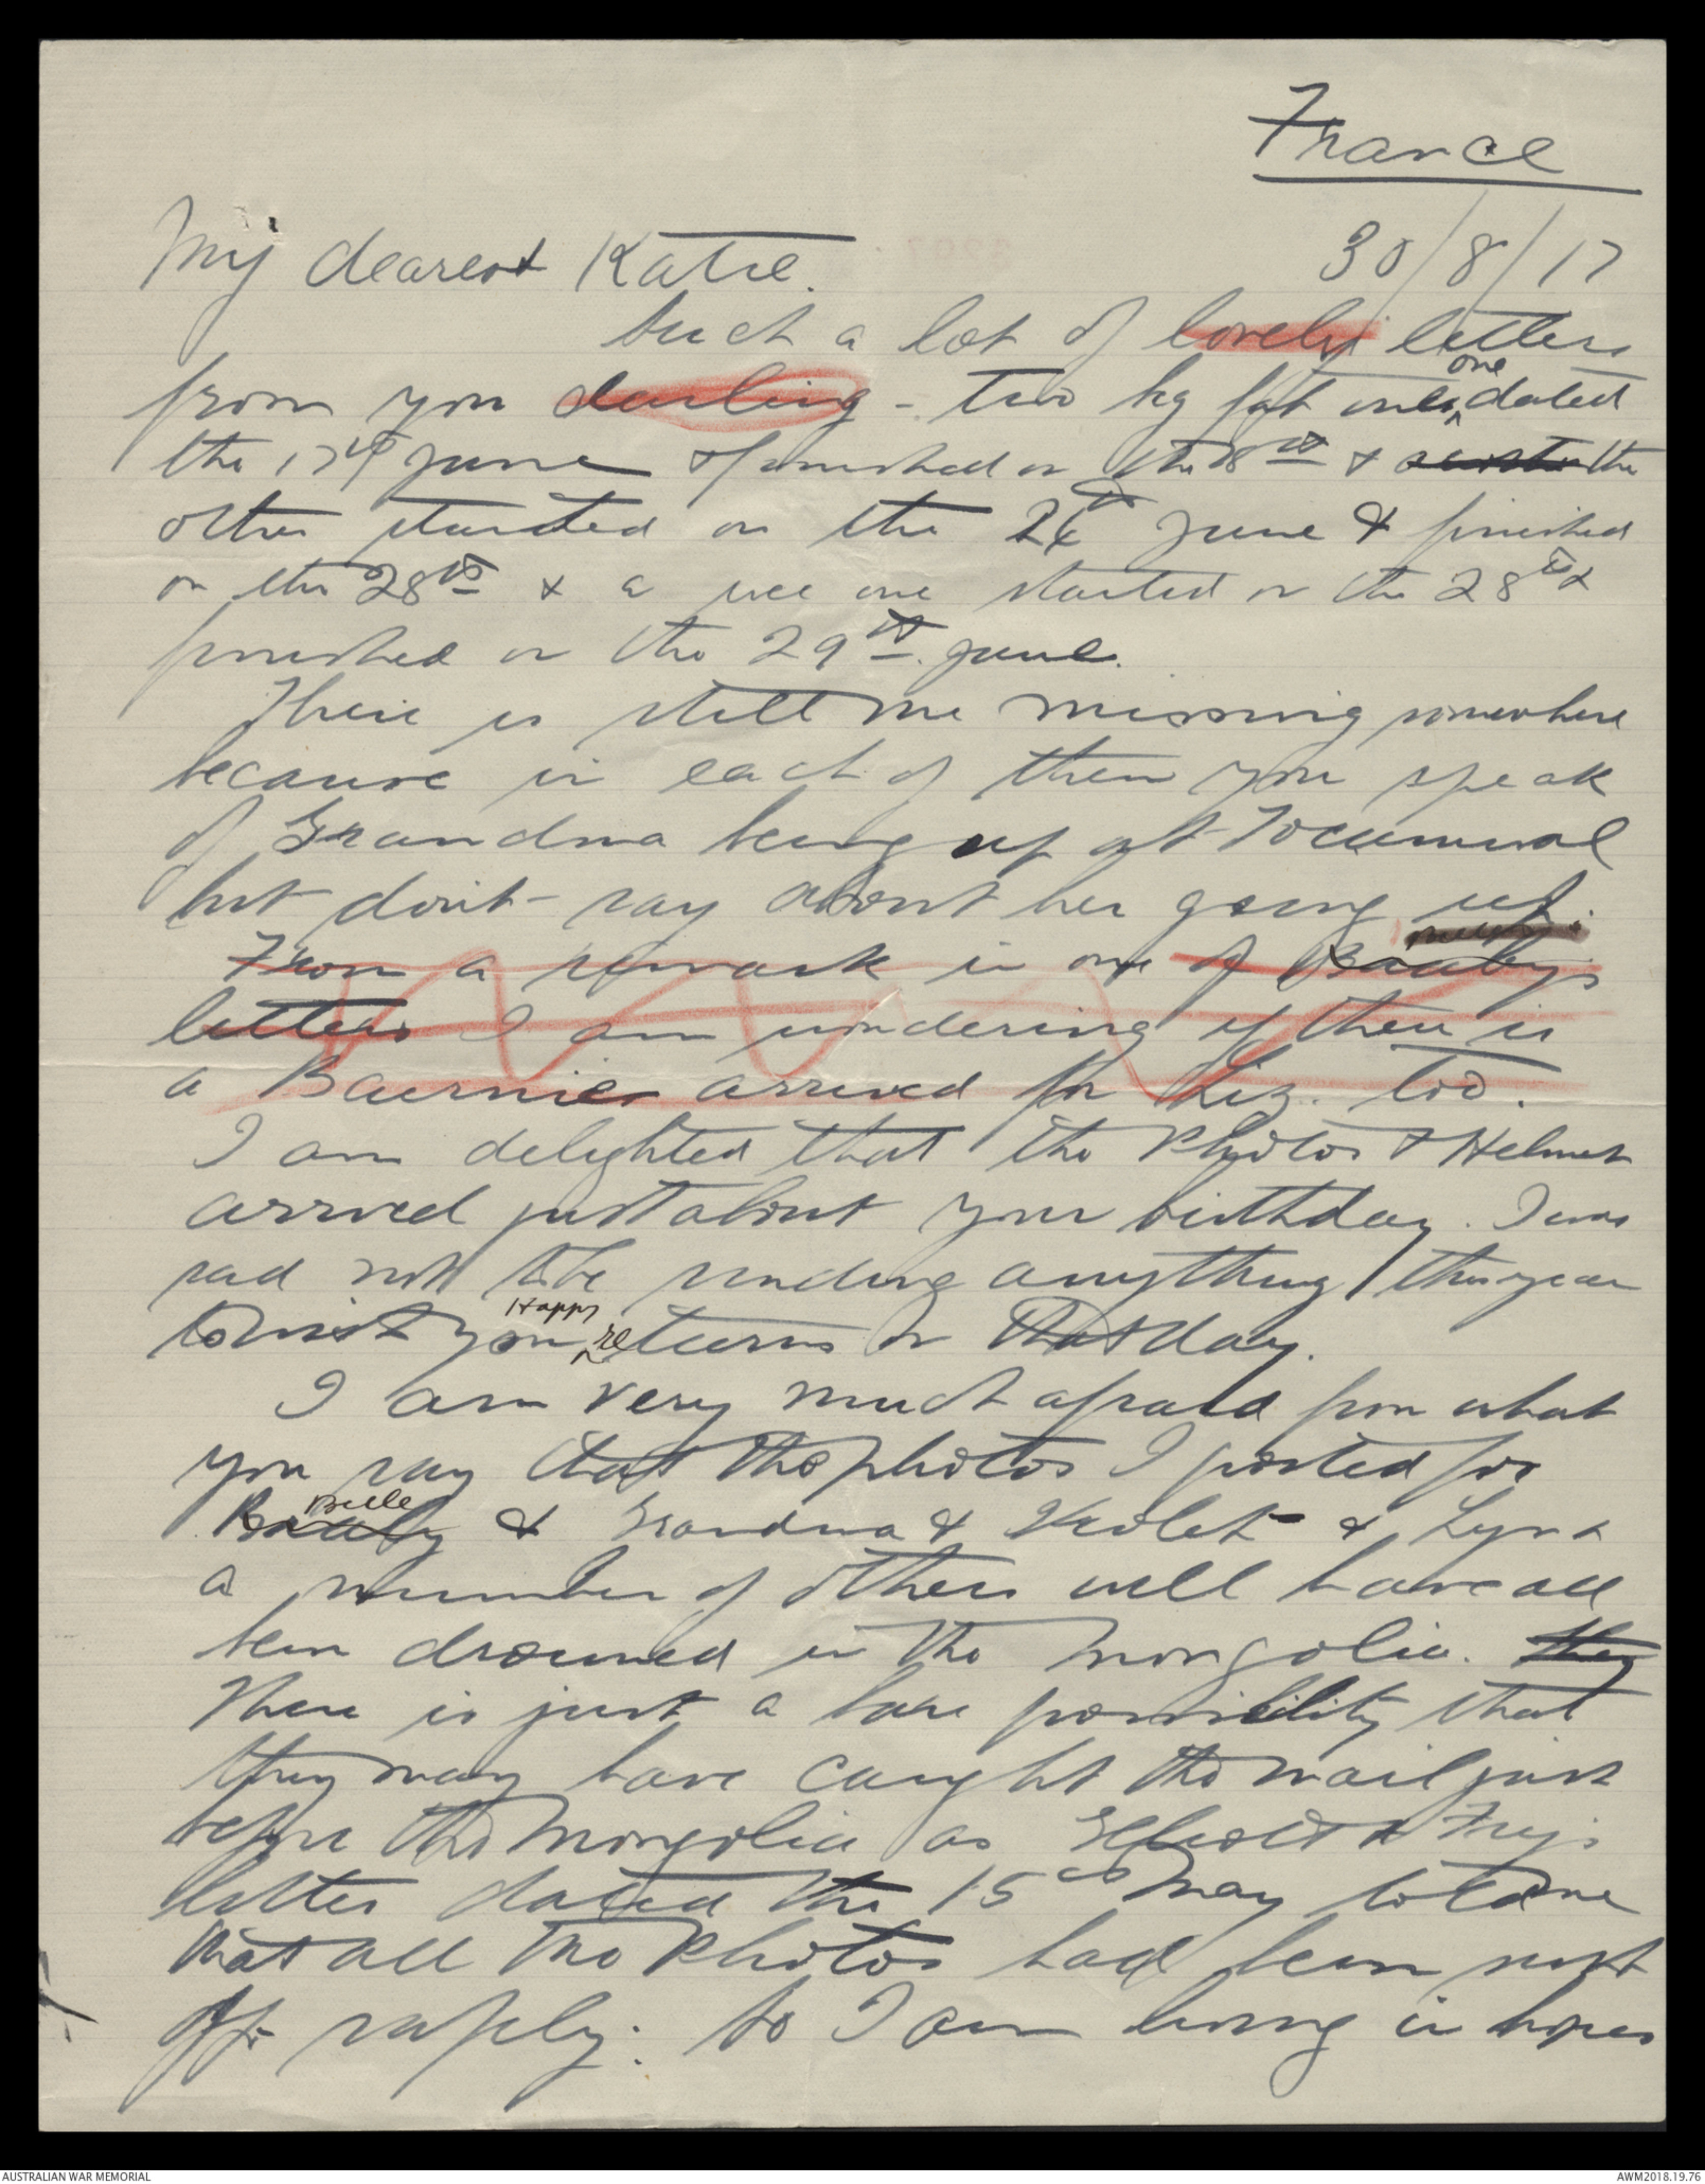 France
30/8/17
My dearest Katie.
Such a lot of lovely letters
from you darling - two big fat ones, one dated
the 17th June & finished on the 18th & the
other started on the 26th June & finished
on the 28th & a wee one started on the 28th &
finished on the 29th. June.
There is still one missing somewhere
because in each of them you speak
of Grandma being up at Tocumwal
but don't say about her going up.
From a remark in one of Baaby's
letters I am wondering if there is
a Bairnie arrived for Liz. too.
I am delighted that the Photos & Helmet
arrived just about your birthday. I was
sad not to be sending anything this year
to wish you Happy returns on that day.
I am very much afraid from what
you say that the photos I posted for
Baaby Belle & Grandma & Violet & Lyn &
a number of others will have all
been drowned in the Mongolia. they
There is just a bare possibility that
they may have caught the mail just
before the Mongolia as Elliott & Fry's
letter dated the 15th May told me
that all the Photos had been sent
off safely. So I am living in hopes
AUSTRALIAN WAR MEMORIAL
AWM2018.19.76